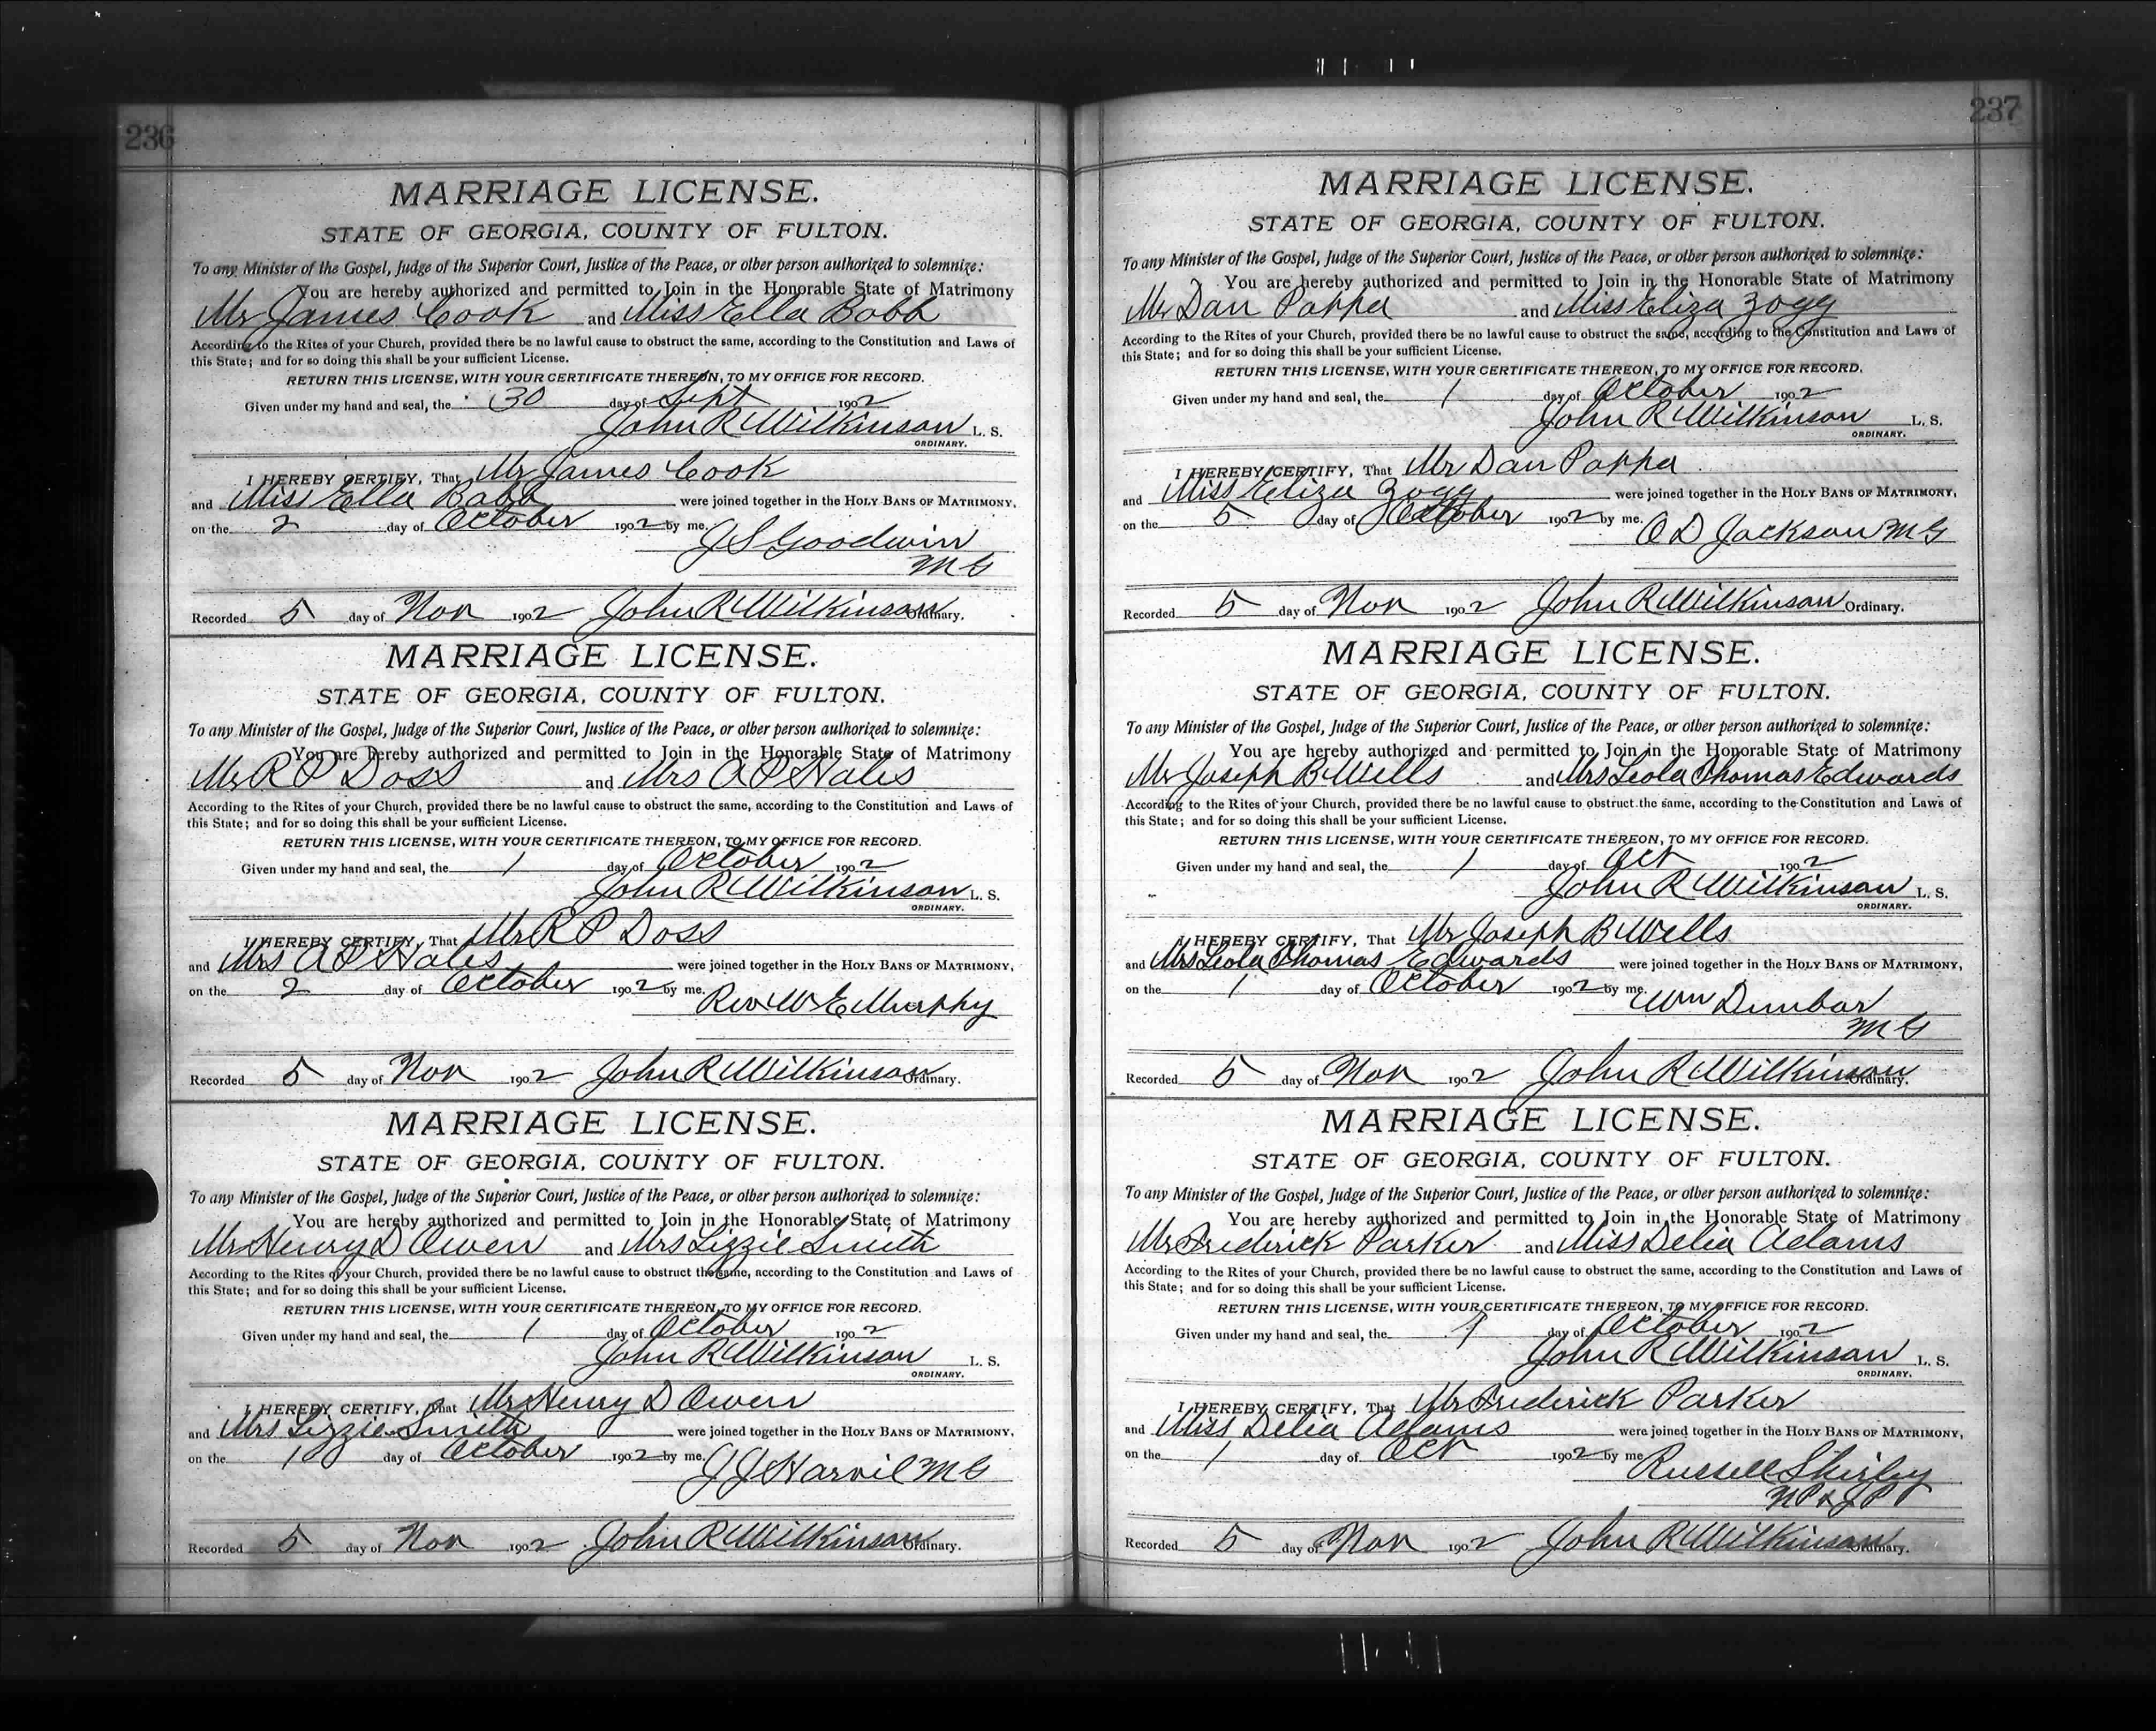 236
MARRIAGE LICENSE.
STATE OF GEORGIA, COUNTY OF FULTON.
To any Minister of the Gospel, Judge of the Superior Court, Justice of the Peace, or other person authorized to solemnize:
You are hereby authorized and permitted to Join in the Honorable State of Matrimony
Mr James Cook and Miss Ella Babb
According to the Rites of your Church, provided there be no lawful cause to obstruct the same, according to the Constitution and Laws of
this State; and for so doing this shall be your sufficient License.
RETURN THIS LICENSE, WITH YOUR CERTIFICATE THEREON, TO MY OFFICE FOR RECORD.
Given under my hand and seal, the 30 day of Sept 1902
John R Wilkinson L. S.
ORDINARY.
I HEREBY CERTIFY, That Mr James Cook
and Miss Ella Babb were joined together in the HOLY BANS OF MATRIMONY,
on the 2 day of October 1902 by me.
J S Goodwin
M G
Recorded 5 day of Nov 1902 John R Wilkinson Ordinary.
MARRIAGE LICENSE.
STATE OF GEORGIA, COUNTY OF FULTON.
To any Minister of the Gospel, Judge of the Superior Court, Justice of the Peace, or other person authorized to solemnize:
You are hereby authorized and permitted to Join in the Honorable State of Matrimony
Mr R P Doss and Mrs A P Hales
According to the Rites of your Church, provided there be no lawful cause to obstruct the same, according to the Constitution and Laws of
this State; and for so doing this shall be your sufficient License.
RETURN THIS LICENSE, WITH YOUR CERTIFICATE THEREON, TO MY OFFICE FOR RECORD.
Given under my hand and seal, the 1 day of October 1902
John R Wilkinson L. S.
ORDINARY.
I HEREBY CERTIFY, That Mr R P Doss
and Mrs A P Hales were joined together in the HOLY BANS OF MATRIMONY,
on the 2 day of October 1902 by me.
Rev W E Murphy
Recorded 5 day of Nov 1902 John R Wilkinson Ordinary.
MARRIAGE LICENSE.
STATE OF GEORGIA, COUNTY OF FULTON.
To any Minister of the Gospel, Judge of the Superior Court, Justice of the Peace, or other person authorized to solemnize:
You are hereby authorized and permitted to Join in the Honorable State of Matrimony
Mr Henry D Owen and Mrs Lizzie Smith
According to the Rites of your Church, provided there be no lawful cause to obstruct the same, according to the Constitution and Laws of
this State; and for so doing this shall be your sufficient License.
RETURN THIS LICENSE, WITH YOUR CERTIFICATE THEREON, TO MY OFFICE FOR RECORD.
Given under my hand and seal, the 1 day of October 1902
John R Wilkinson L. S.
ORDINARY.
I HEREBY CERTIFY, That Mr Henry D Owen
and Mrs Lizzie Smith were joined together in the HOLY BANS OF MATRIMONY,
on the day of October 1902 by me.
J J Harvil M G
Recorded 5 day of Nov 1902 John R Wilkinson Ordinary.
237
MARRIAGE LICENSE.
STATE OF GEORGIA, COUNTY OF FULTON.
To any Minister of the Gospel, Judge of the Superior Court, Justice of the Peace, or other person authorized to solemnize:
You are hereby authorized and permitted to Join in the Honorable State of Matrimony
Mr Dan Pappa and Miss Eliza Zogg
According to the Rites of your Church, provided there be no lawful cause to obstruct the same, according to the Constitution and Laws of
this State; and for so doing this shall be your sufficient License.
RETURN THIS LICENSE, WITH YOUR CERTIFICATE THEREON, TO MY OFFICE FOR RECORD.
Given under my hand and seal, the 1 day of October 1902
John R Wilkinson L. S.
ORDINARY.
I HEREBY CERTIFY, That Mr Dan Pappa
and Miss Eliza Zogg were joined together in the HOLY BANS OF MATRIMONY,
on the 5 day of October 1902 by me.
O D Jackson M G
Recorded 5 day of Nov 1902 John R Wilkinson Ordinary.
MARRIAGE LICENSE.
STATE OF GEORGIA, COUNTY OF FULTON.
To any Minister of the Gospel, Judge of the Superior Court, Justice of the Peace, or other person authorized to solemnize:
You are hereby authorized and permitted to Join in the Honorable State of Matrimony
Mr Joseph B Wells and Mrs Leola Thomas Edwards
According to the Rites of your Church, provided there be no lawful cause to obstruct the same, according to the Constitution and Laws of
this State; and for so doing this shall be your sufficient License.
RETURN THIS LICENSE, WITH YOUR CERTIFICATE THEREON, TO MY OFFICE FOR RECORD.
Given under my hand and seal, the 1 day of Oct 1902
John R Wilkinson L. S.
ORDINARY.
I HEREBY CERTIFY, That Mr Joseph B Wells
and Mrs Leola Thomas Edwards were joined together in the HOLY BANS OF MATRIMONY,
on the 1 day of October 1902 by me.
Wm Dunbar
M G
Recorded 5 day of Nov 1902 John R Wilkinson Ordinary.
MARRIAGE LICENSE.
STATE OF GEORGIA, COUNTY OF FULTON.
To any Minister of the Gospel, Judge of the Superior Court, Justice of the Peace, or other person authorized to solemnize:
You are hereby authorized and permitted to Join in the Honorable State of Matrimony
Mr Frederick Parker and Miss Delia Adams
According to the Rites of your Church, provided there be no lawful cause to obstruct the same, according to the Constitution and Laws of
this State; and for so doing this shall be your sufficient License.
RETURN THIS LICENSE, WITH YOUR CERTIFICATE THEREON, TO MY OFFICE FOR RECORD.
Given under my hand and seal, the 1 day of October 1902
John R Wilkinson L. S.
ORDINARY.
I HEREBY CERTIFY, That Mr Frederick Parker
and Miss Delia Adams were joined together in the HOLY BANS OF MATRIMONY,
on the 1 day of Oct 1902 by me
Russell Shirley
N P & J P
Recorded 5 day of Nov 1902 John R Wilkinson Ordinary.